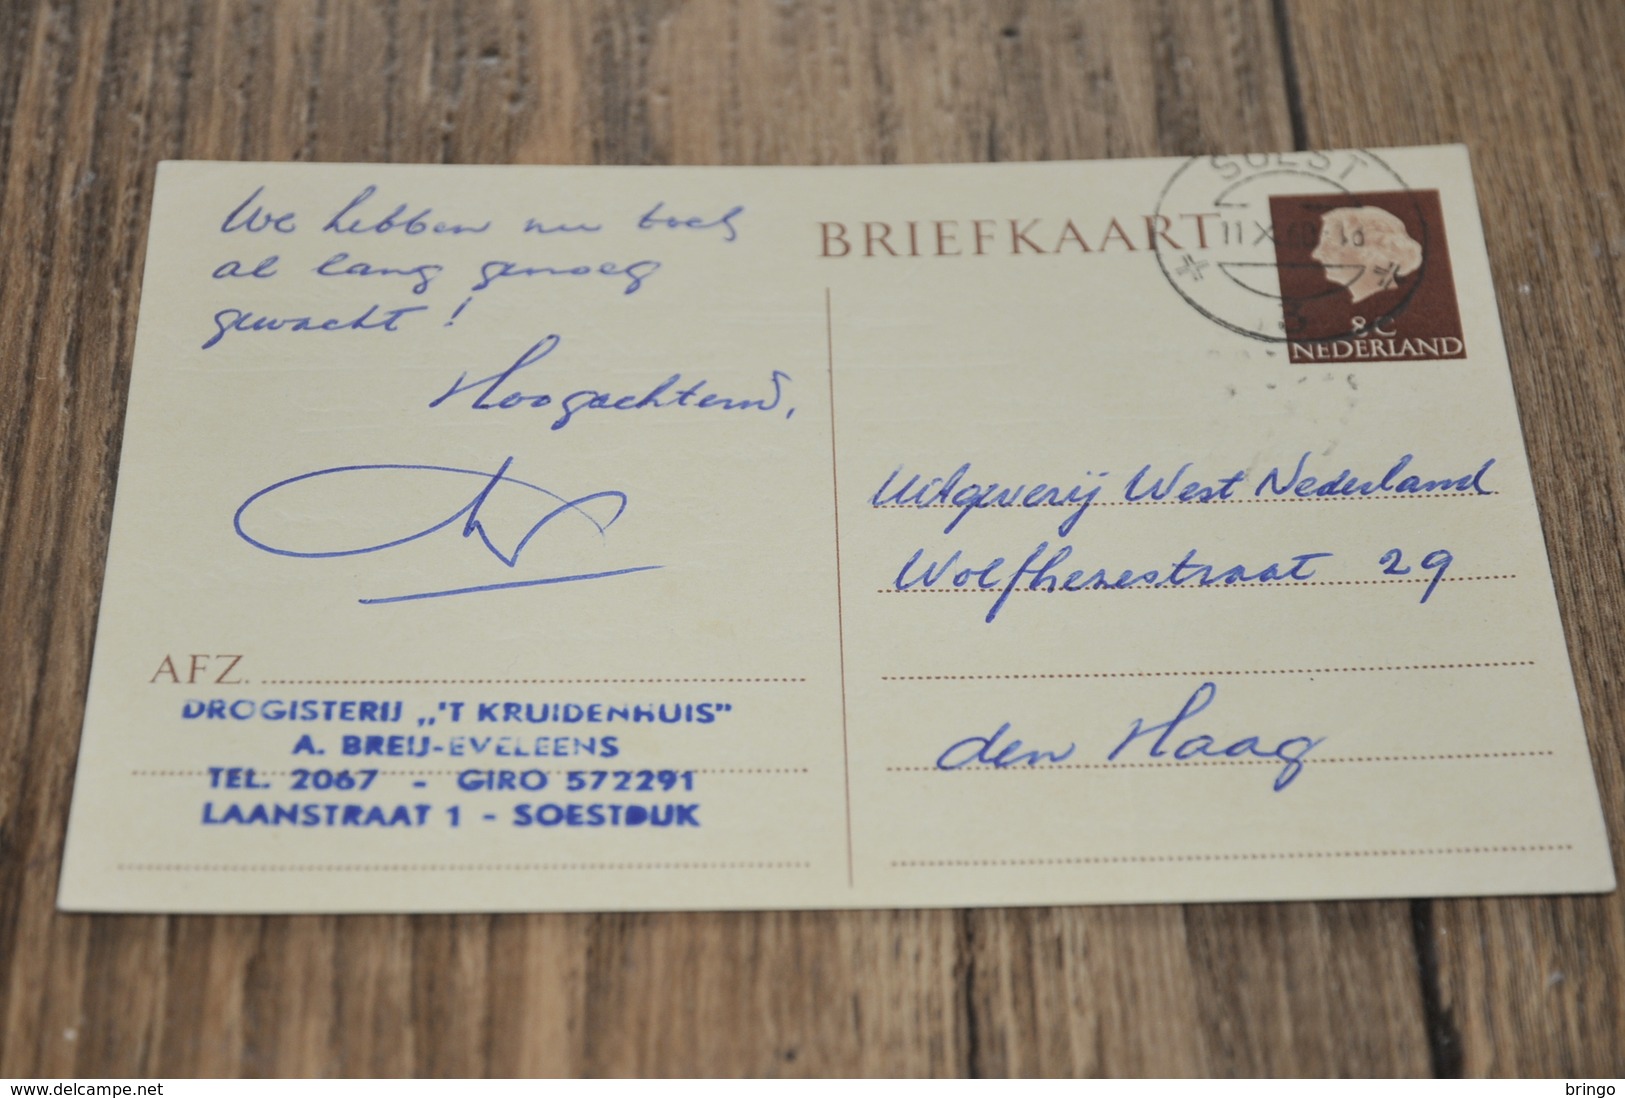 We hebben nu toch
al lang genoeg
gewacht!
Hoogachtend,
AFZ.
DROGISTERIJ „'T KRUIDENHUIS"
A. BREIJ-EVELEENS
TEL. 2067 - GIRO 572291
LAANSTRAAT 1 - SOESTDIJK
BRIEFKAART
SOEST
8 C
NEDERLAND
Uitgeverij West Nederland
Wolfhezestraat 29
den Haag
delcampe.net
bringo